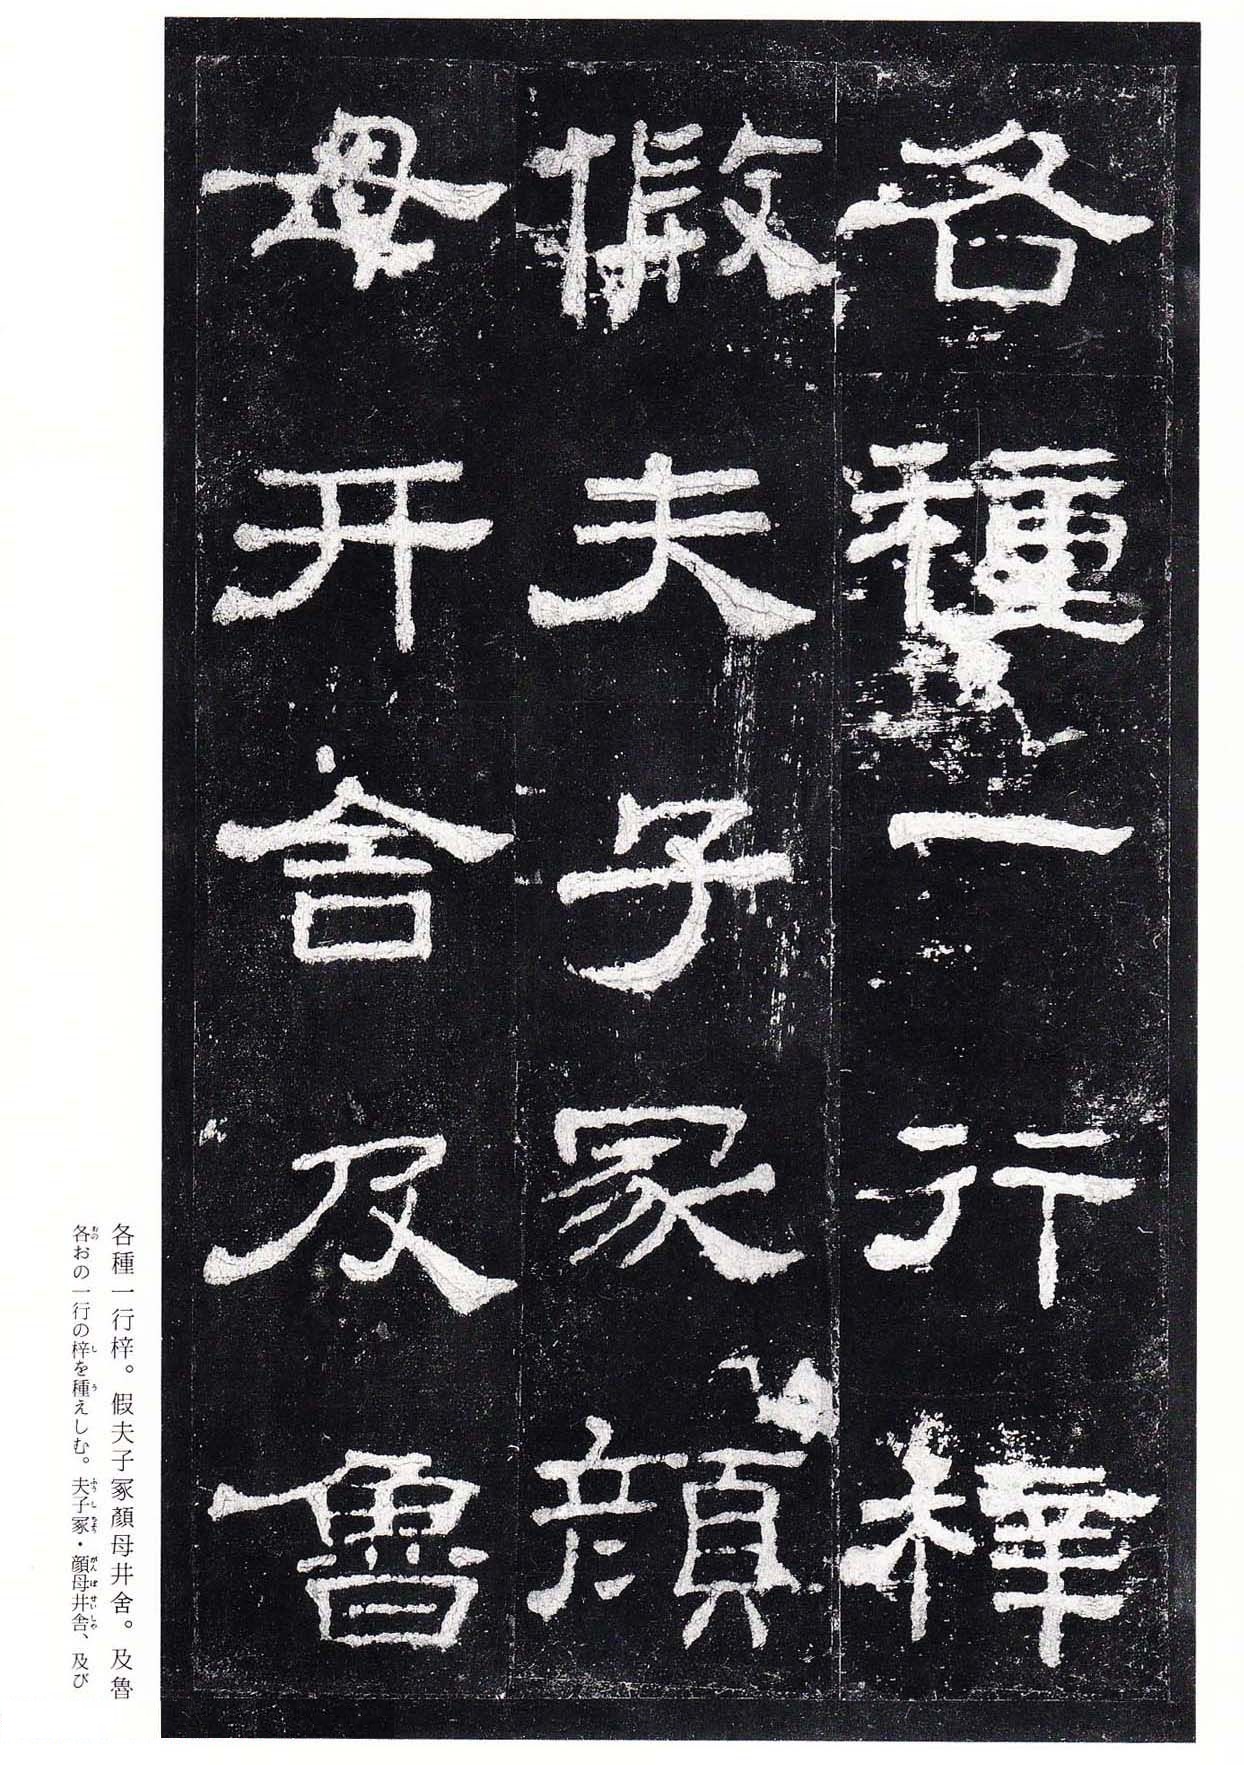 各種一行梓
假夫子冢顏
母井舍及魯
各種一行梓。假夫子冢顏母井舍。及魯
各おの一行の梓を種えしむ。夫子冢・顔母井舎、及び